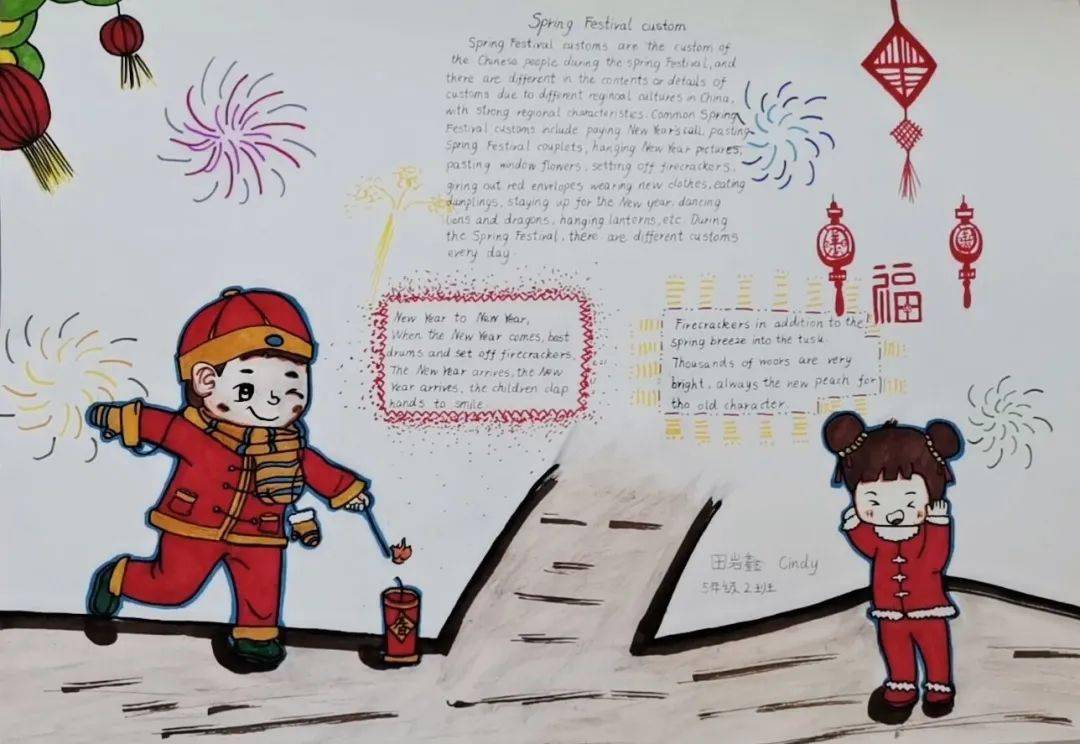 Spring Festival custom
Spring Festival customs are the custom of
the Chinese people during the spring Festival, and
there are different in the contents or details of
customs due to different reginoal cultures in China,
with strong regional characteristics. Common Spring
Festival customs include paying New Year's call, pasting
Spring Festival couplets, hanging New Year pictures,
pasting window flowers, setting off firecrackers,
giring out red envelopes wearing new clothes, eating
dumplings, staying up for the New year, dancing
lions and dragons, hanging lanterns, etc. During
the Spring Festival, there are different customs
every day.
New Year to New Year,
When the New Year comes, beat
drums and set off firecrackers.
The New Year arrives, the New
Year arrives, the children clap
hands to smile.
福
Firecrackers in addition to the
spring breeze into the tusu.
Thousands of moors are very
bright, always the new peach for
the old character.
春
田岩鑫 Cindy
5年级2班